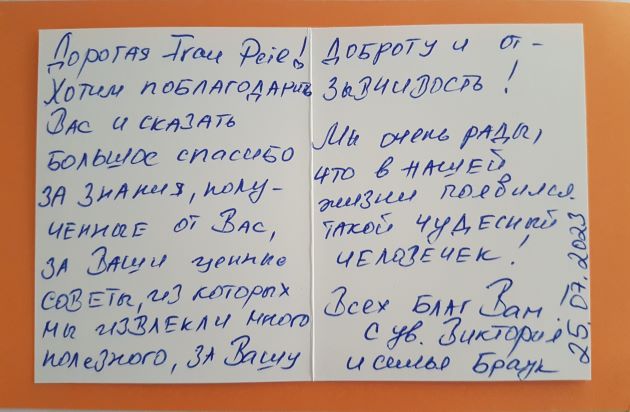 Дорогая Frau Peie!
Хотим поблагодарить
Вас и сказать
большое спасибо
за знания, полу-
ченные от Вас,
за Ваши ценные
советы, из которых
мы извлекли много
полезного, за Вашу
доброту и от-
зывчивость!
Мы очень рады,
что в нашей
жизни появился
такой чудесный
человечек!
Всех благ Вам!
с ув. Виктория
и семья Браук
25.07.2023